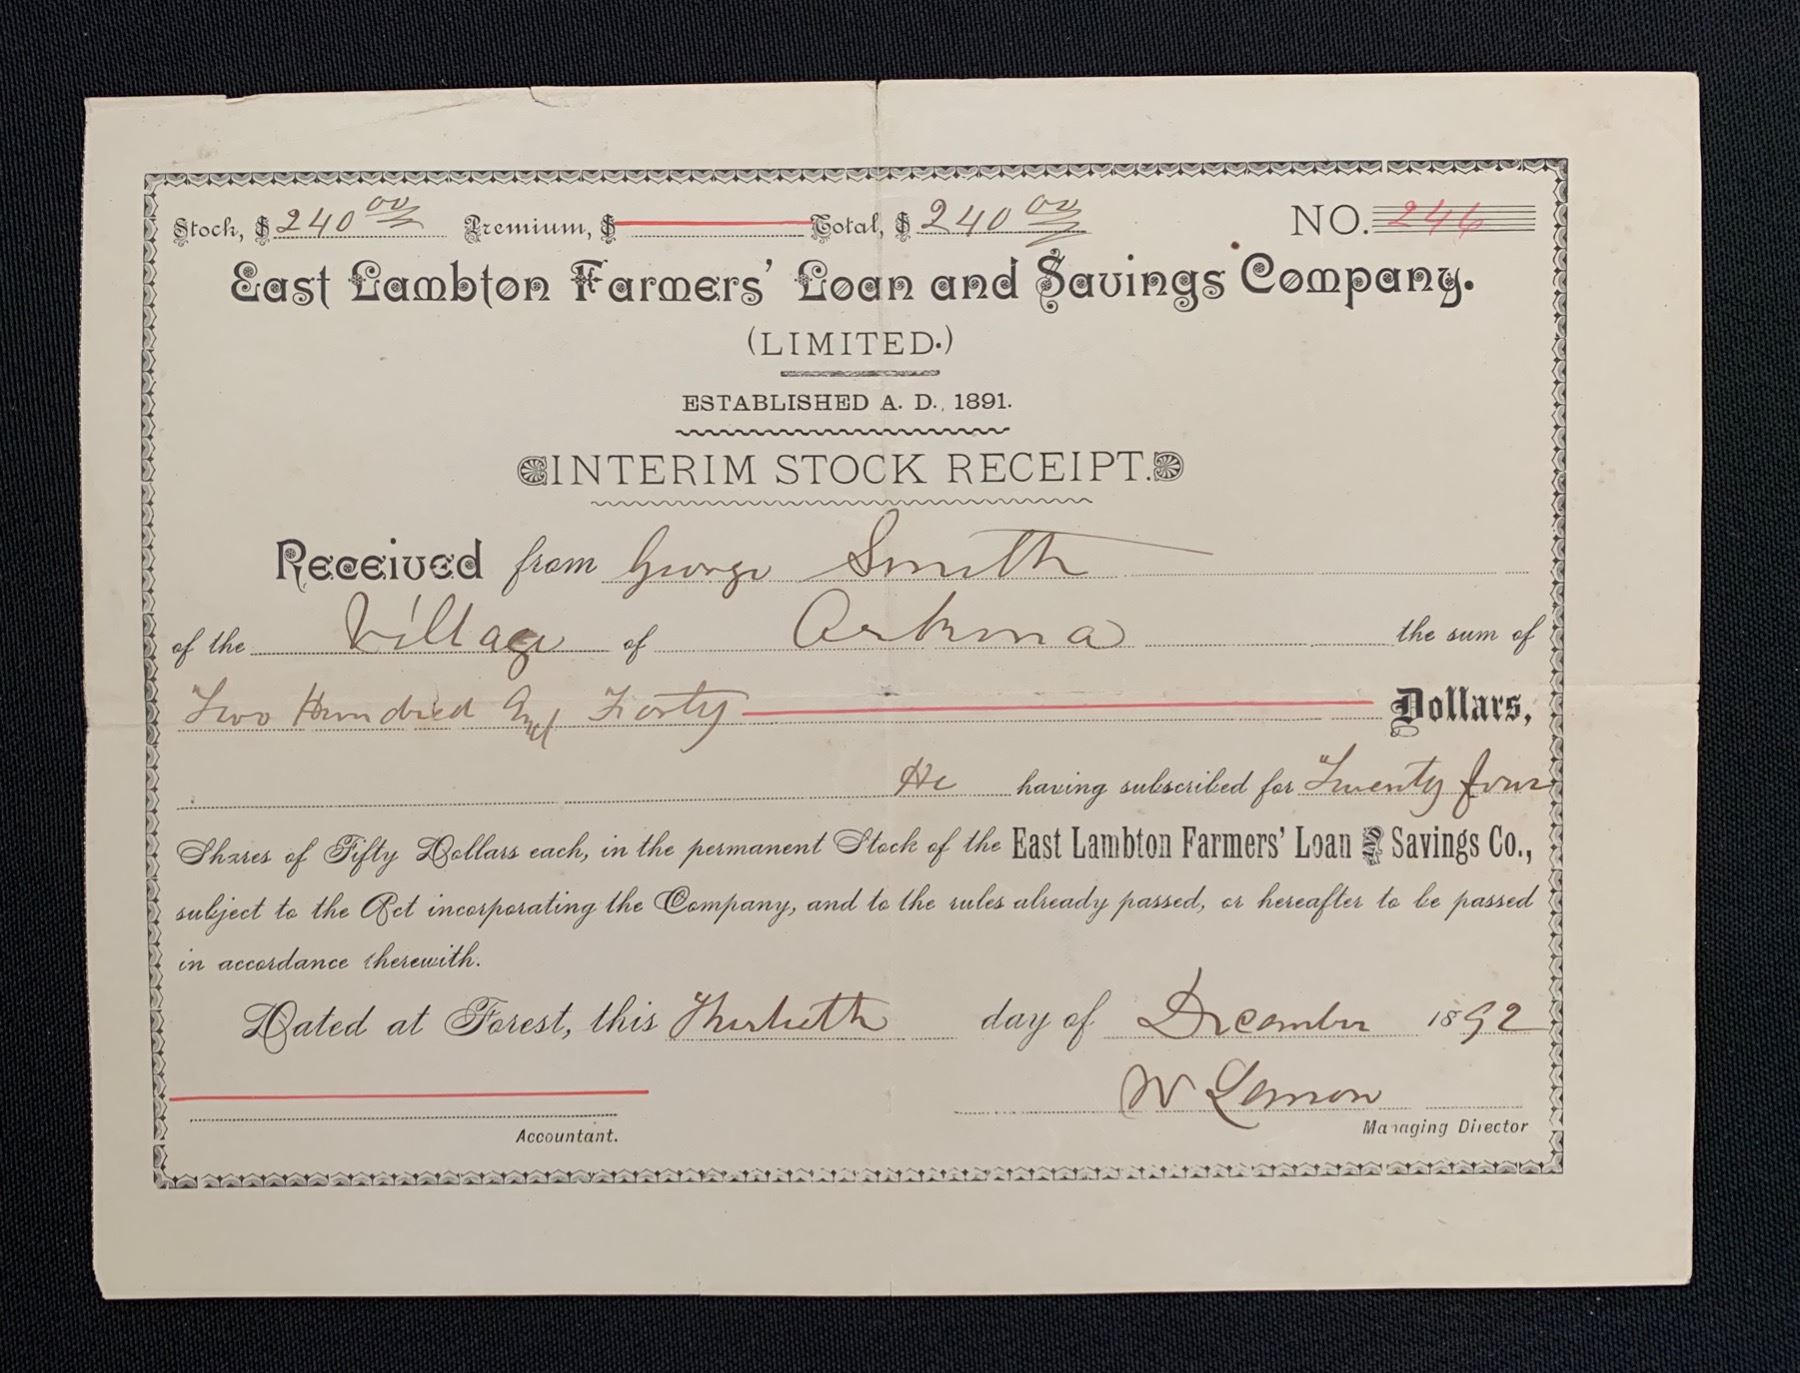 Stock, $ 240 00 Premium, $ Total, $ 240 00 NO. 246
East Lambton Farmers' Loan and Savings Company.
(LIMITED.)
ESTABLISHED A. D., 1891.
INTERIM STOCK RECEIPT.
Received from George Smith
of the Village of Arkona the sum of
Two Hundred And Forty Dollars,
He having subscribed for Twenty four
Shares of Fifty Dollars each, in the permanent Stock of the East Lambton Farmers' Loan AND Savings Co.,
subject to the Act incorporating the Company, and to the rules already passed, or hereafter to be passed
in accordance therewith.
Dated at Forest, this Thirtieth day of December 1892
W Lemon
Accountant. Managing Director